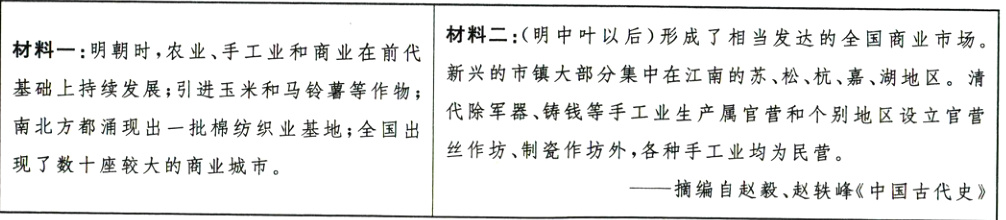 材料一:明朝时,农业、手工业和商业在前代
基础上持续发展;引进玉米和马铃薯等作物;
南北方都涌现出一批棉纺织业基地;全国出
现了数十座较大的商业城市。
材料二:(明中叶以后)形成了相当发达的全国商业市场。
新兴的市镇大部分集中在江南的苏、松、杭、嘉、湖地区。清
代除军器、铸钱等手工业生产属官营和个别地区设立官营
丝作坊、制瓷作坊外,各种手工业均为民营。
——摘编自赵毅、赵轶峰《中国古代史》